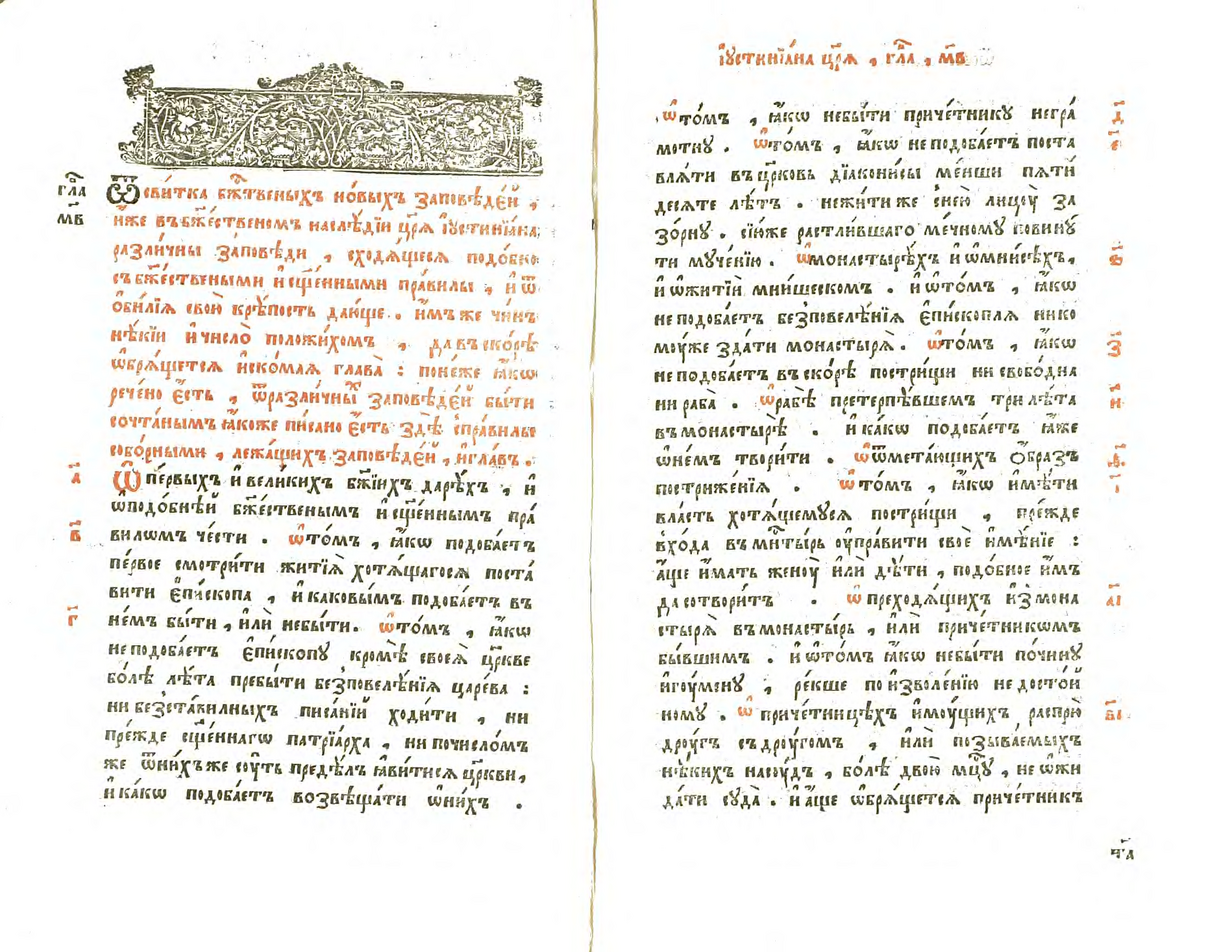 гла
мв
Ѿсви́тка бж҃твеныхъ но́выхъ за́повѣде́й ,
и́же въбж҃е́ственомъ наслѣ́дїи цр҃ѧ̀ і҆устинїа́на
разли́чны за́повѣди , сходѧ́щесѧ подо́бно
събж҃е́ствеными и҆сщ҃е́нными пра́вилы , и҆ѿ
ѻ҆би́лїѧ свою̀ крѣ́пость даю́ще . и҆́мъже чи́нъ
нѣ́кїи и҆число̀ положи́хомъ , давъско́рѣ
ѡ҆брѧ́щетсѧ и҆ско́маѧ глава̀ : поне́же ꙗ҆́кѡ
рече́но є҆́сть , ѿразли́чны за́повѣде́й бы́ти
сочта́нымъ ꙗ҆́коже пи́сано є҆́сть здѣ̀ спра́вилы
собо́рными , лежа́щихъ за́повѣде́й , и҆гла́въ .
а҃
Ѡ҆пе́рвыхъ и҆вели́кихъ бж҃їихъ дарѣ́хъ , и҆
ѡ҆подо́бнѣй бж҃е́ственымъ и҆сщ҃е́ннымъ пра́
в҃
вилѡмъ че́сти . ѡ҆то́мъ , ꙗ҆́кѡ подоба́етъ
пе́рвое смотри́ти житїѧ̀ хотѧ́щагосѧ поста́
вити є҆пи́скопа , и҆каковы́мъ подоба́етъ въ
г҃
не́мъ бы́ти , и҆лѝ небы́ти . ѡ҆то́мъ , ꙗ҆́кѡ
неподоба́етъ є҆пи́скопу кромѣ̀ своеѧ̀ цр҃кве
бо́лѣ лѣ́та пребы́ти безповелѣ́нїѧ царе́ва :
ни безста́вилныхъ писа́нїй ходи́ти , ни
пре́жде сщ҃е́ннагѡ патрїа́рха , ни почисло́мъ
же ѿни́хъже су́ть предѣ́лъ ꙗ҆ви́тисѧ цр҃кви,
и҆ка́кѡ подоба́етъ возвѣща́ти ѡ҆ни́хъ .
і҆устинїа́на цр҃ѧ̀ , гла , мв
д҃
ѡ҆то́мъ , ꙗ҆́кѡ небы́ти приче́тнику негра́
е҃
мотну . ѡ҆то́мъ , ꙗ҆́кѡ неподоба́етъ поста
влѧ́ти въцр҃ковь дїакони́сы ме́нши пѧти́
десѧте лѣ́тъ . нежи́тиже снѐю лицоу̀ за
зо́рну . сїѝже растли́вшаго ме́чному пови́ну
s҃
ти муче́нїю . ѡ҆монастырѣ́хъ и҆ѡ҆мнисѣ́хъ,
и҆ѡ҆житїѝ мни́шескомъ . и҆ѡ҆то́мъ , ꙗ҆́кѡ
неподоба́етъ безповелѣ́нїѧ є҆пи́скоплѧ нико
з҃
моу́же зда́ти монастырѧ̀ . ѡ҆то́мъ , ꙗ҆́кѡ
неподоба́етъ въско́рѣ постри́щи нисвобо́дна
и҃
ни раба̀ . ѡ҆рабѣ̀ претерпѣ́вшемъ трилѣ́та
въмонастырѣ̀ . и҆ка́кѡ подоба́етъ ꙗ҆́же
ѡ҆не́мъ твори́ти . ѡ҆ѿмета́ющихъ ѻ҆́бразъ
постриже́нїѧ . ѡ҆то́мъ , ꙗ҆́кѡ и҆мѣ́ти
вла́сть хотѧ́щемусѧ постри́щи , пре́жде
вхо́да въмн҃ты́рь оу҆пра́вити своѐ и҆мѣ́нїе :
а҆́ще и҆́мать женоу̀ и҆лѝ дѣ́ти , подо́бное и҆́мъ
а҃і
да сотвори́тъ . ѡ҆ преходѧ́щихъ и҆змона
стырѧ̀ въмонасты́рь , и҆лѝ приче́тникѡмъ
бы́вшимъ . и҆ѡ҆то́мъ ꙗ҆́кѡ небы́ти почи́ну
и҆гоу́мену , ре́кше по и҆зволе́нїю недосто́й
в҃і
ному . ѡ҆ приче́тницѣхъ и҆моу́щихъ распрю̀
дроу́гъ съдроу́гомъ , и҆лѝ позыва́емыхъ
нѣ́кихъ насоу́дъ , бо́лѣ двою̀ мц҃у , не ѡ҆жи
да́ти суда̀ . и҆а҆́ще ѡ҆брѧ́щетсѧ приче́тникъ
ч҃а